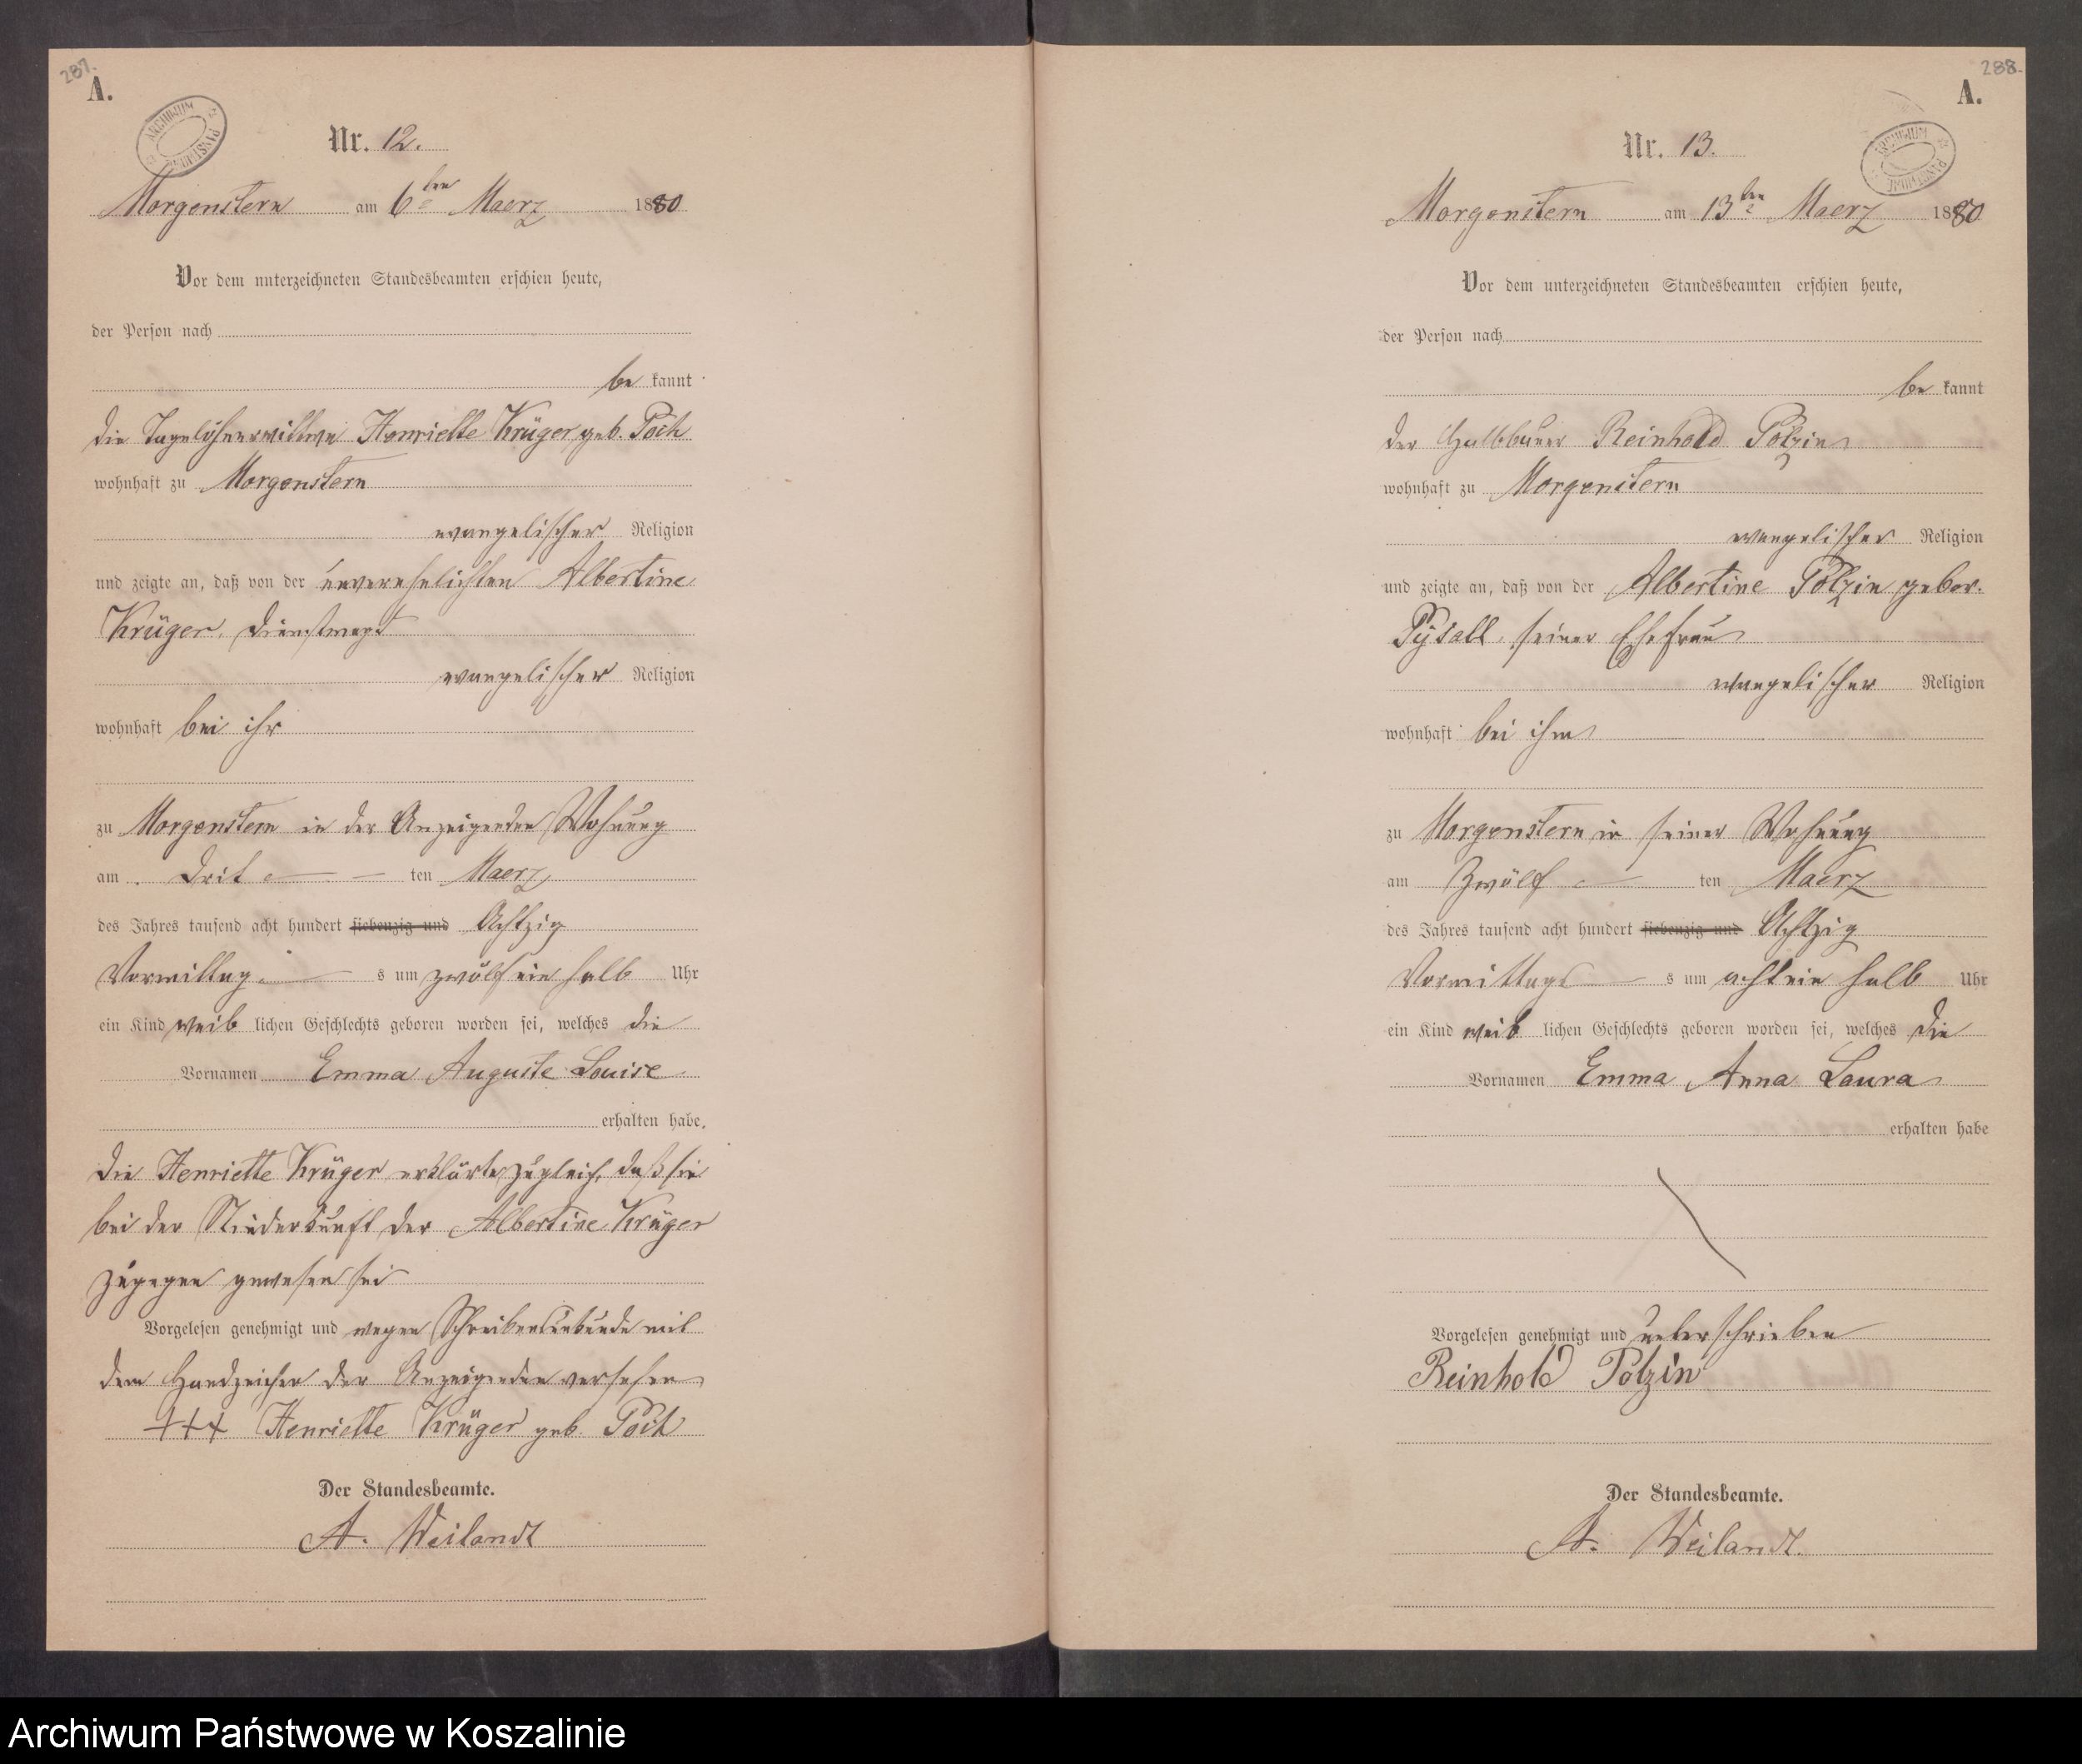 287.
A.
ARCHIWUM PAŃSTWOWE
Nr. 12.
Morgenstern am 6ten Maerz 1880
Vor dem unterzeichneten Standesbeamten erschien heute,
der Person nach
be kannt
die Tagelöhnerwittwe Henriette Krüger geb. Poch
wohnhaft zu Morgenstern
evangelischer Religion
und zeigte an, daß von der unverehelichten Albertine
Krüger, Dienstmagd
evangelischer Religion
wohnhaft bei ihr
zu Morgenstern in der Anzeigenden Wohnung
am Drit ten Maerz
des Jahres tausend acht hundert siebenzig und Achtzig
Vormittag s um zwölf ein halb Uhr
ein Kind weib lichen Geschlechts geboren worden sei, welches die
Vornamen Emma Auguste Louise
erhalten habe.
Die Henriette Krüger erklärte zugleich, daß sie
bei der Niederkunft der Albertine Krüger
zugegen gewesen sei
Vorgelesen genehmigt und wegen Schreibensunkunde mit
dem Handzeichen der Anzeigenden versehen
+++ Henriette Krüger geb. Poch
Der Standesbeamte.
A. Weilandt
288.
A.
ARCHIWUM PAŃSTWOWE
Nr. 13.
Morgenstern am 13ten Maerz 1880
Vor dem unterzeichneten Standesbeamten erschien heute,
der Person nach
be kannt
der Halbbauer Reinhold Polzin
wohnhaft zu Morgenstern
evangelischer Religion
und zeigte an, daß von der Albertine Polzin gebor.
Pysall, seiner Ehefrau
evangelischer Religion
wohnhaft bei ihm
zu Morgenstern in seiner Wohnung
am Zwölf ten Maerz
des Jahres tausend acht hundert siebenzig und Achtzig
Vormittags s um acht ein halb Uhr
ein Kind weib lichen Geschlechts geboren worden sei, welches die
Vornamen Emma Anna Laura
erhalten habe
Vorgelesen genehmigt und unterschrieben
Reinhold Polzin
Der Standesbeamte.
A. Weilandt.
Archiwum Państwowe w Koszalinie